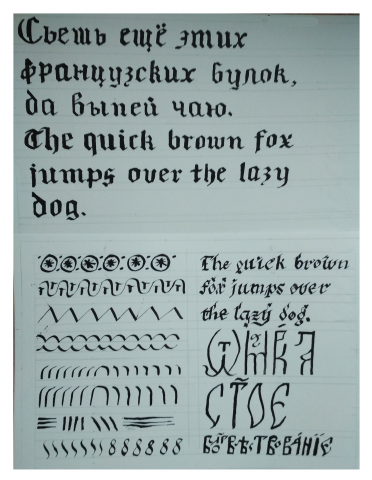 Съешь ещё этих
французских булок,
да выпей чаю.
The quick brown fox
jumps over the lazy
dog.
The quick brown
fox jumps over
the lazy dog.
СТОЕ